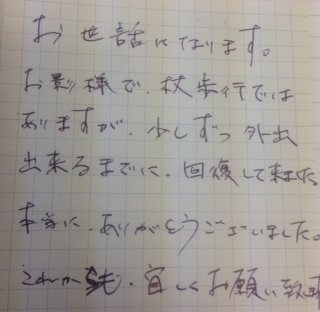 お世話になります。
お影様で、杖歩行では
ありますが、少しずつ外出
出来るまでに、回復して来ました
本当に、ありがとうございました。
これからも、宜しくお願い致しま